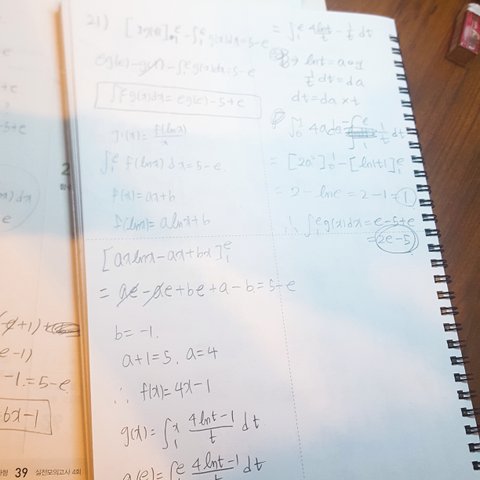 21) [xg(x)]₁ᵉ - ∫₁ᵉ g(x)dx = 5-e
eg(e) - g(1) - ∫₁ᵉ g(x)dx = 5-e
∫₁ᵉ g(x)dx = eg(e) - 5+e
g'(x) = f(lnx)/x
∫₁ᵉ f(lnx) dx = 5-e.
f(x) = ax+b
f(lnx) = alnx+b
[axlnx - ax + bx]₁ᵉ
= ae - ae + be + a - b = 5-e
b = -1.
a+1 = 5. a = 4
∴ f(x) = 4x-1
g(x) = ∫₁ˣ (4lnt-1)/t dt
g(e) = ∫₁ᵉ (4lnt-1)/t dt
= ∫₁ᵉ 4lnt/t - 1/t dt
lnt = a
1/t dt = da
dt = da × t
∫₀¹ 4a da - ∫₁ᵉ 1/t dt
= [2a²]₀¹ - [lnt]₁ᵉ
= 2 - lne = 2-1 = 1
∴ ∫₁ᵉ g(x)dx = e-5+e
= 2e-5
+1)
e-1)
-1. = 5-e
6x-1
39 실전모의고사 4회